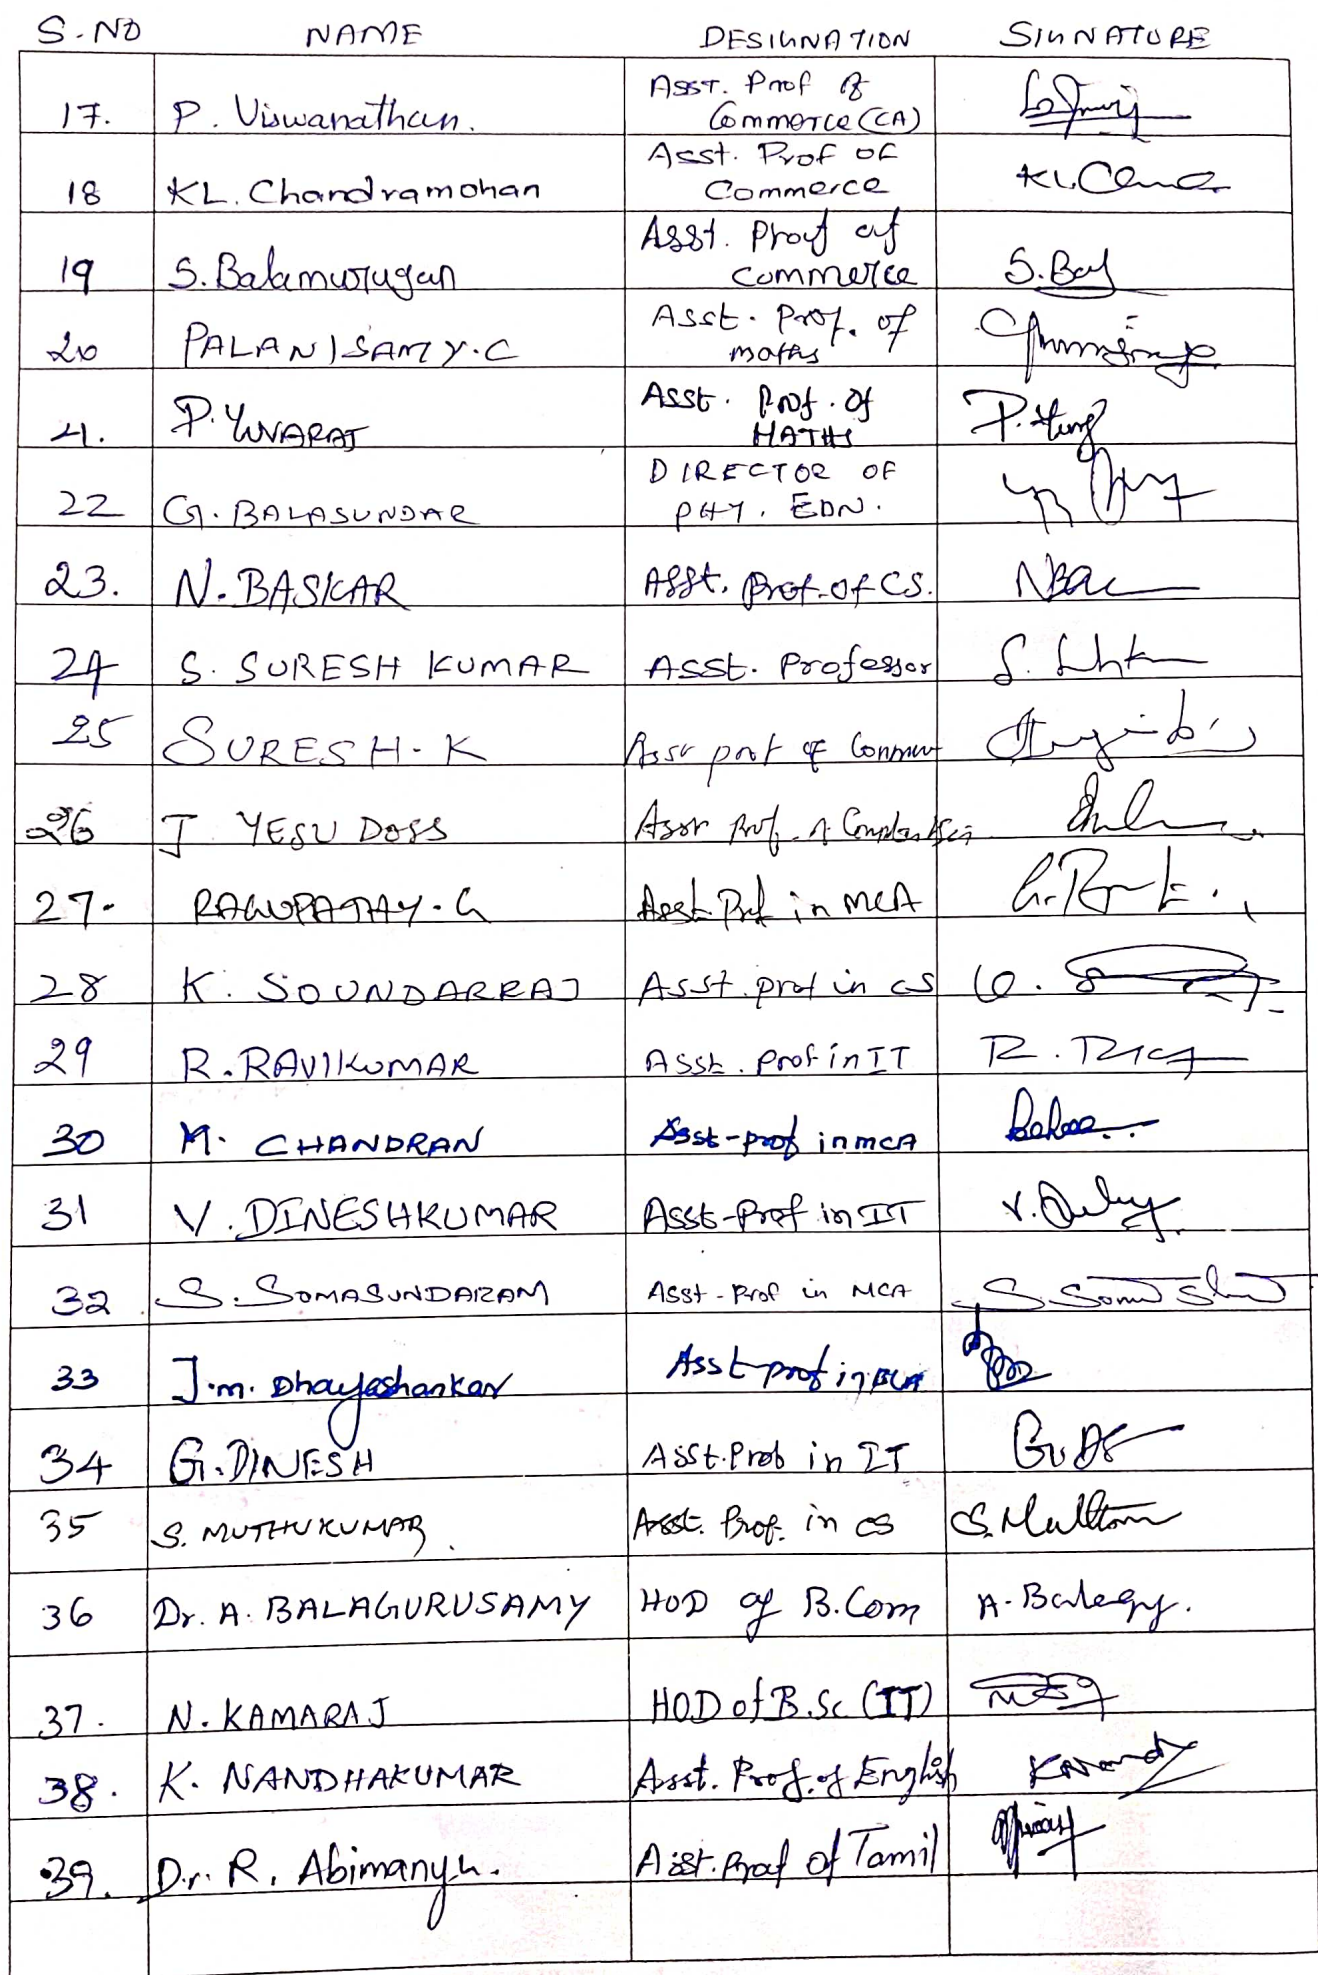 S.NO NAME DESIGNATION SIGNATURE
17. P. Viswanathan. Asst. Prof of
Commerce (CA)
18 KL. Chandramohan Asst. Prof of
Commerce KL.
19 S. Balamurugan Asst. Prof of
commerce S. Bal
20 PALANISAMY. C Asst. Prof. of
maths
21. P. YUVARAJ Asst. Prof. of
MATHS P.
22 G. BALASUNDAR DIRECTOR OF
PHY. EDN.
23. N. BASKAR Asst. Prof. of CS.
24 S. SURESH KUMAR Asst. Professor S.
25 SURESH. K Asst prof of
26 J. YESU DOSS Asst Prof.
27. RAGUPATHY. G Asst. Prof in MCA G.
28 K. SOUNDARRAJ Asst. prof in CS
29 R. RAVIKUMAR Asst. Prof in IT R.
30 M. CHANDRAN Asst-prof in MCA
31 V. DINESHKUMAR Asst-Prof in IT V.
32 S. SOMASUNDARAM Asst-Prof in MCA S.
33 J.M. Dhayashankar Asst prof in BCA
34 G. DINESH Asst. Prof in IT
35 S. MUTHUKUMAR. Asst. Prof. in CS S.
36 Dr. A. BALAGURUSAMY HOD of B.Com A.
37. N. KAMARAJ HOD of B.Sc (IT)
38. K. NANDHAKUMAR Asst. Prof. of English
39. Dr. R. Abimanyu. Asst. Prof of Tamil